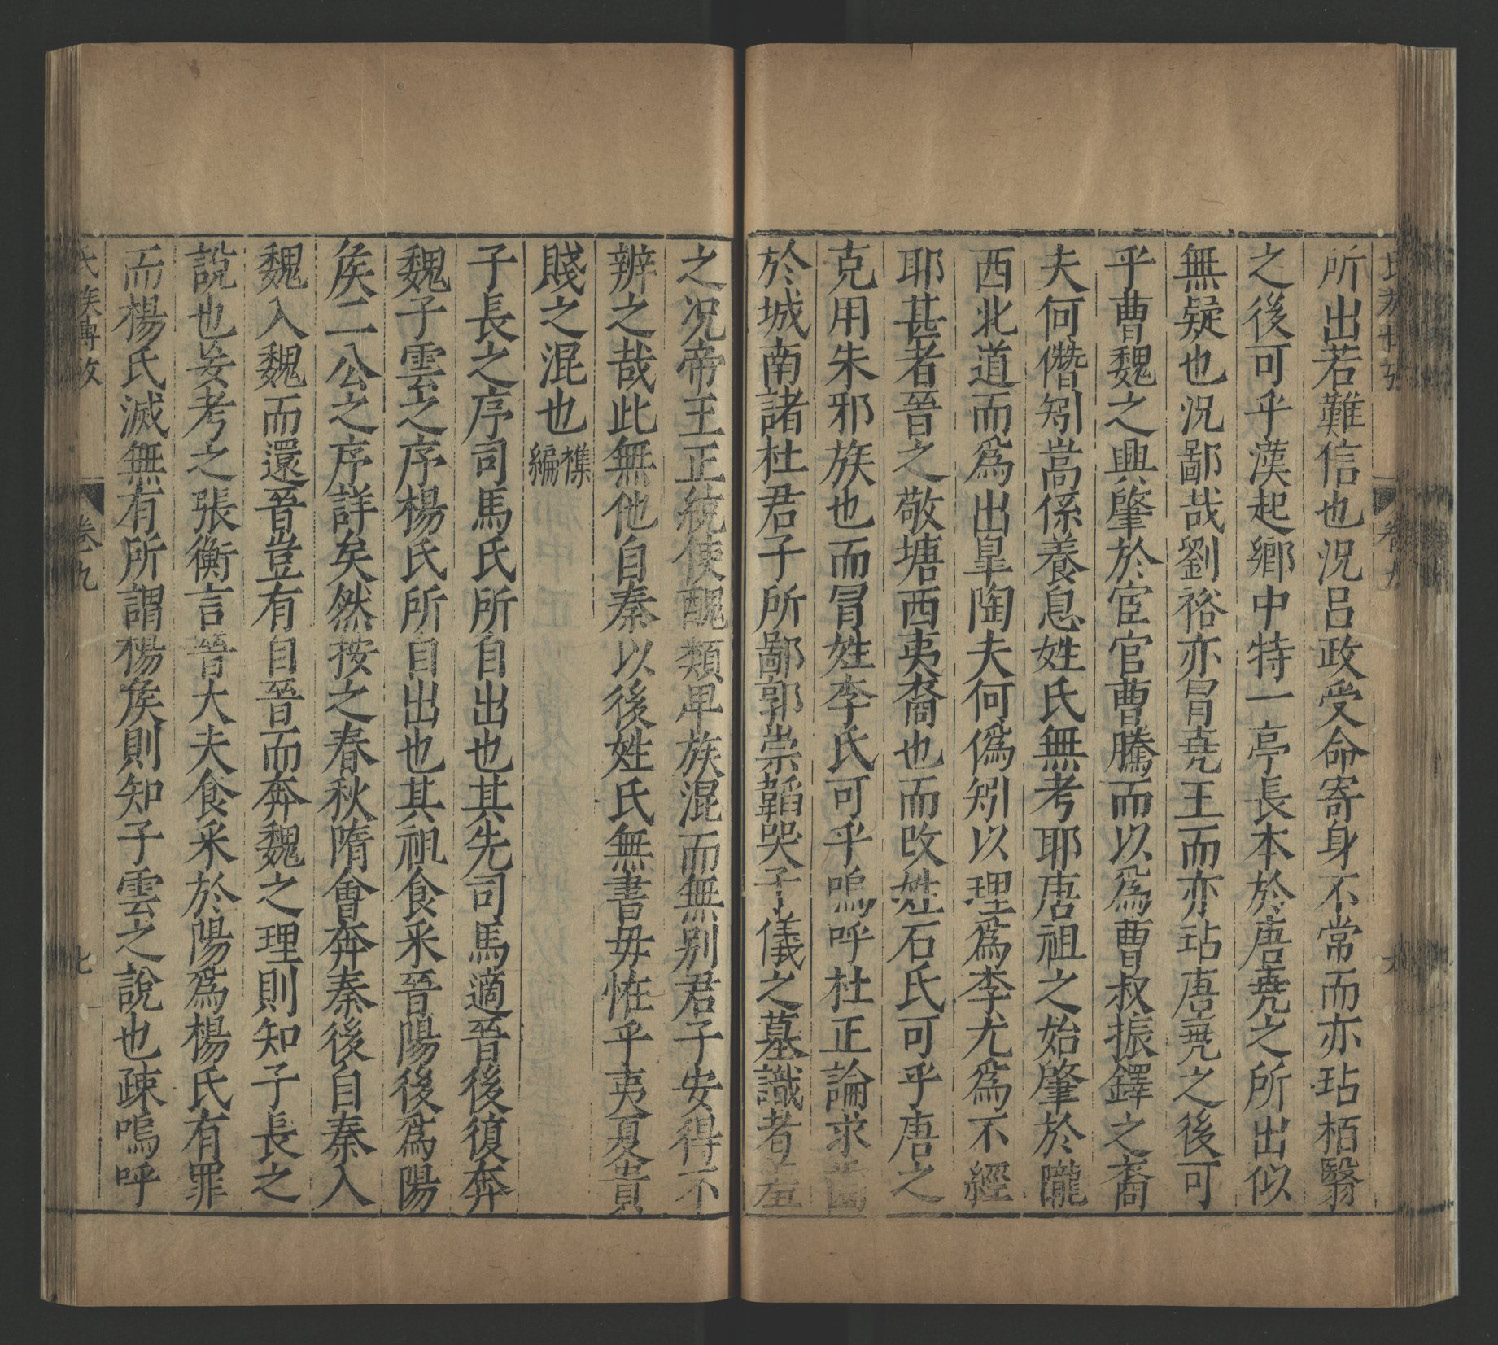 所出若難信也況呂政受命寄身不常而亦玷栢翳
之後可乎漢起鄉中特一亭長本於唐堯之所出似
無疑也況鄙哉劉裕亦冒堯王而亦玷唐堯之後可
乎曹魏之興肇於宦官曹騰而以爲曹叔振鐸之裔
夫何僭矧嵩係養息姓氏無考耶唐祖之始肇於隴
西北道而爲出臯陶夫何僞矧以理爲李尤爲不經
耶甚者晉之敬塘西夷裔也而改姓石氏可乎唐之
克用朱邪族也而冐姓李氏可乎嗚呼杜正論求
於城南諸杜君子所鄙郭崇韜哭子儀之墓識者羞
之況帝王正統使醜類卑族混而無别君子安得不
辨之哉此無他自秦以後姓氏無書毋恠乎夷夏貴
賤之混也襍編
子長之序司馬氏所自出也其先司馬適晉後復奔
魏子雲之序楊氏所自出也其祖食采晉陽後爲陽
矦二公之序詳矣然按之春秋隋會奔秦後自秦入
魏入魏而還晉豈有自晉而奔魏之理則知子長之
說也妄考之張衡言晉大夫食采於陽爲楊氏有罪
而楊氏滅無有所謂楊矦則知子雲之說也疎嗚呼
卷九
七